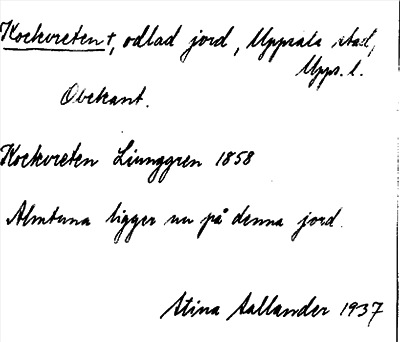 Kockvreten †, odlad jord, Uppsala stad,
Upps. l.
Obekant.
Kockvreten Ljunggren 1858
Almtuna ligger nu på denna jord.
Stina Aallander 1937